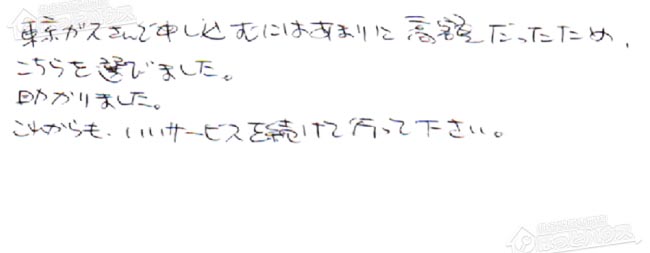 東京ガスさんで申し込むにはあまりに高額だったため、
こちらを選びました。
助かりました。
これからも、いいサービスを続けて行って下さい。